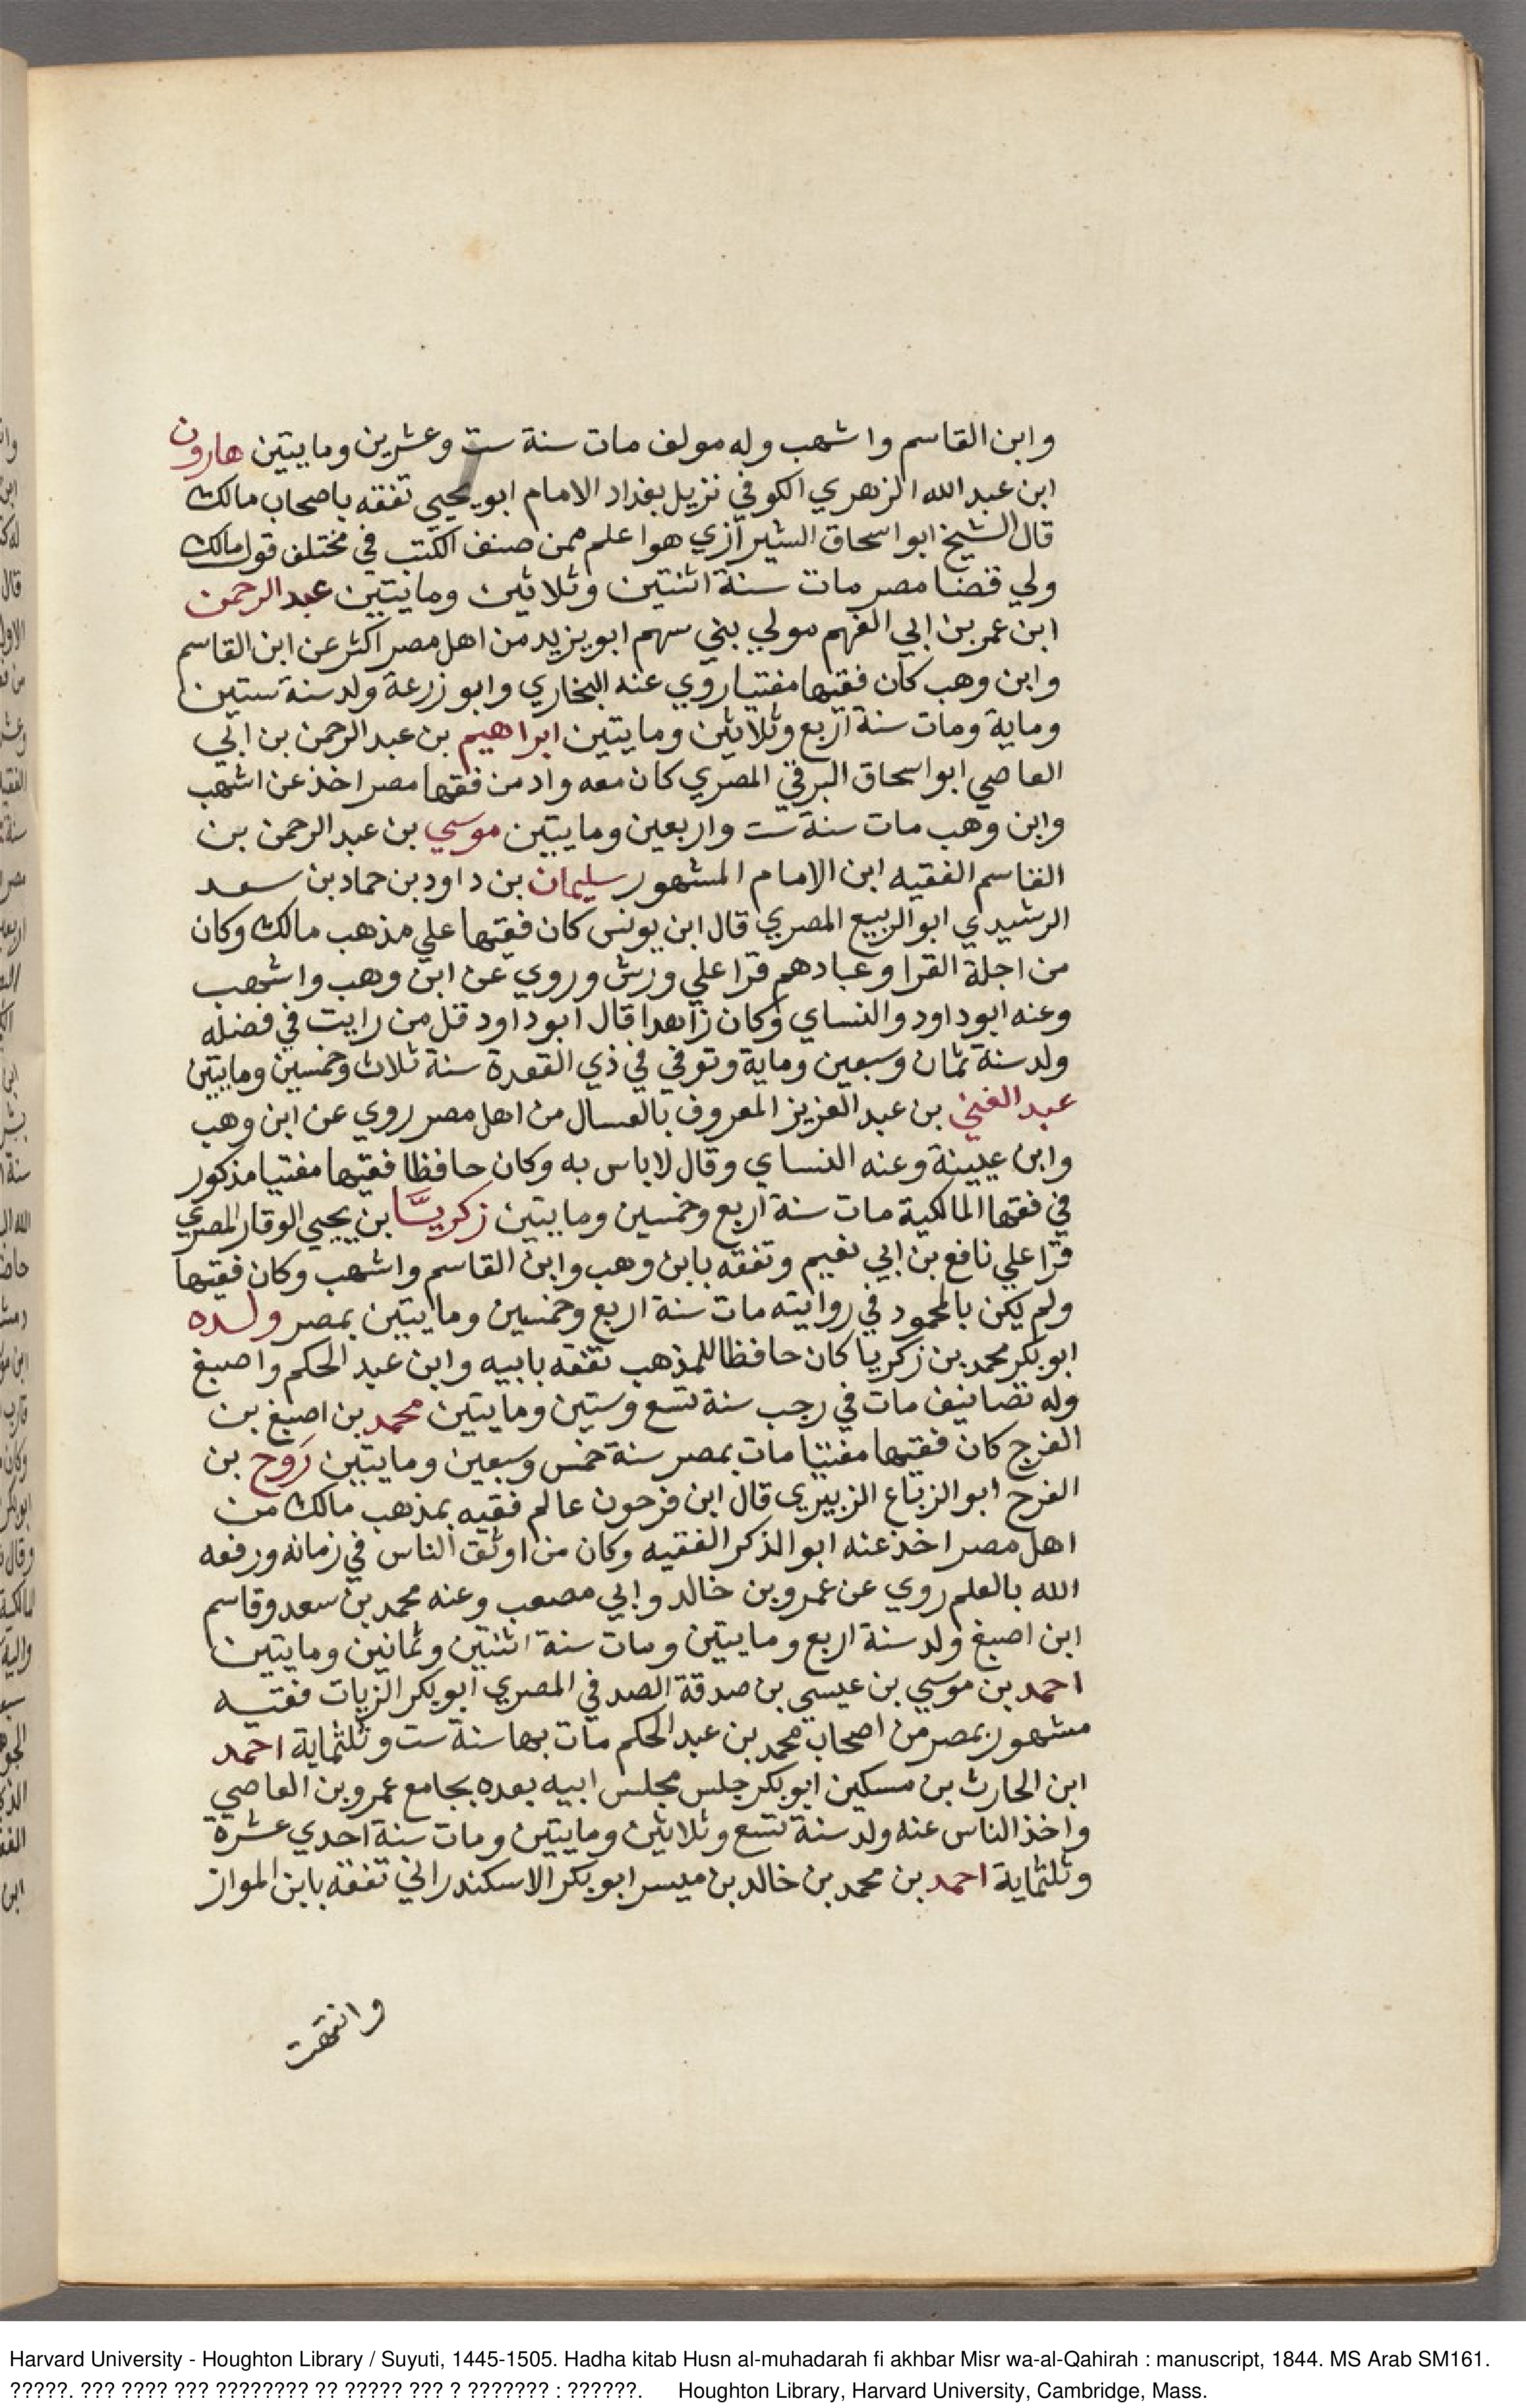 وابن القاسم واشهب وله مولف مات سنة ست وعشرين ومايتين هارون
ابن عبد الله الزهري الكوفي نزيل بغداد الامام ابو يحيي تفقه باصحاب مالك
قال الشيخ ابو اسحاق الشيرازي هو اعلم ممن صنف الكتب في مختلف قول مالك
ولي قضا مصر مات سنة اثنتين وثلاثين ومايتين عبد الرحمن
ابن عمر بن ابي الفهم مولي بني سهم ابو يزيد من اهل مصر اكثر عن ابن القاسم
وابن وهب كان فقيها مفتيا روي عنه البخاري وابو زرعة ولد سنة ستين
وماية ومات سنة اربع وثلاثين ومايتين ابراهيم بن عبد الرحمن بن ابي
العاصي ابو اسحاق البرقي المصري كان معدوا من فقها مصر اخذ عن اشهب
وابن وهب مات سنة ست واربعين ومايتين موسي بن عبد الرحمن بن
القاسم الفقيه ابن الامام المشهور سليمان بن داود بن حماد بن سعد
الرشيدي ابو الربيع المصري قال ابن يونس كان فقيها علي مذهب مالك وكان
من اجلة القرا وعبادهم قرا علي ورش وروي عن ابن وهب واشهب
وعنه ابو داود والنساي وكان زاهدا قال ابو داود قل من رايت في فضله
ولد سنة ثمان وسبعين وماية وتوفي في ذي القعدة سنة ثلاث وخمسين ومايتين
عبد الغني بن عبد العزيز المعروف بالعسال من اهل مصر روي عن ابن وهب
وابن عيينة وعنه النساي وقال لاباس به وكان حافظا فقيها مفتيا مذكور
في فقها المالكية مات سنة اربع وخمسين ومايتين زكريا بن يحيي الوقار المصري
قرا علي نافع بن ابي نعيم وتفقه بابن وهب وابن القاسم واشهب وكان فقيها
ولم يكن بالمحمود في روايته مات سنة اربع وخمسين ومايتين بمصر ولده
ابو بكر محمد بن زكريا كان حافظا للمذهب تفقه بابيه وابن عبد الحكم واصبغ
وله تصانيف مات في رجب سنة تسع وستين ومايتين محمد بن اصبغ بن
الفرج كان فقيها مفتيا مات بمصر سنة خمس وسبعين ومايتين روح بن
الفرج ابو الزنباع الزبيري قال ابن فرحون عالم فقيه بمذهب مالك من
اهل مصر اخذ عنه ابو الذكر الفقيه وكان من اوثق الناس في زمانه ورفعه
الله بالعلم روي عن عمرو بن خالد وابي مصعب وعنه محمد بن سعد وقاسم
ابن اصبغ ولد سنة اربع ومايتين ومات سنة اثنتين وثمانين ومايتين
احمد بن موسي بن عيسي بن صدقة الصدفي المصري ابو بكر الزيات فقيه
مشهور بمصر من اصحاب محمد بن عبد الحكم مات بها سنة ست وثلثماية احمد
ابن الحارث بن مسكين ابو بكر جلس مجلس ابيه بعده بجامع عمرو بن العاصي
واخذ الناس عنه ولد سنة تسع وثلاثين ومايتين ومات سنة احدي عشرة
وثلثماية احمد بن محمد بن خالد بن ميسر ابو بكر الاسكندراني تفقه بابن المواز
وانتهت
Harvard University - Houghton Library / Suyuti, 1445-1505. Hadha kitab Husn al-muhadarah fi akhbar Misr wa-al-Qahirah : manuscript, 1844. MS Arab SM161.
?????. ??? ???? ??? ???????? ?? ????? ??? ? ??????? : ??????. Houghton Library, Harvard University, Cambridge, Mass.